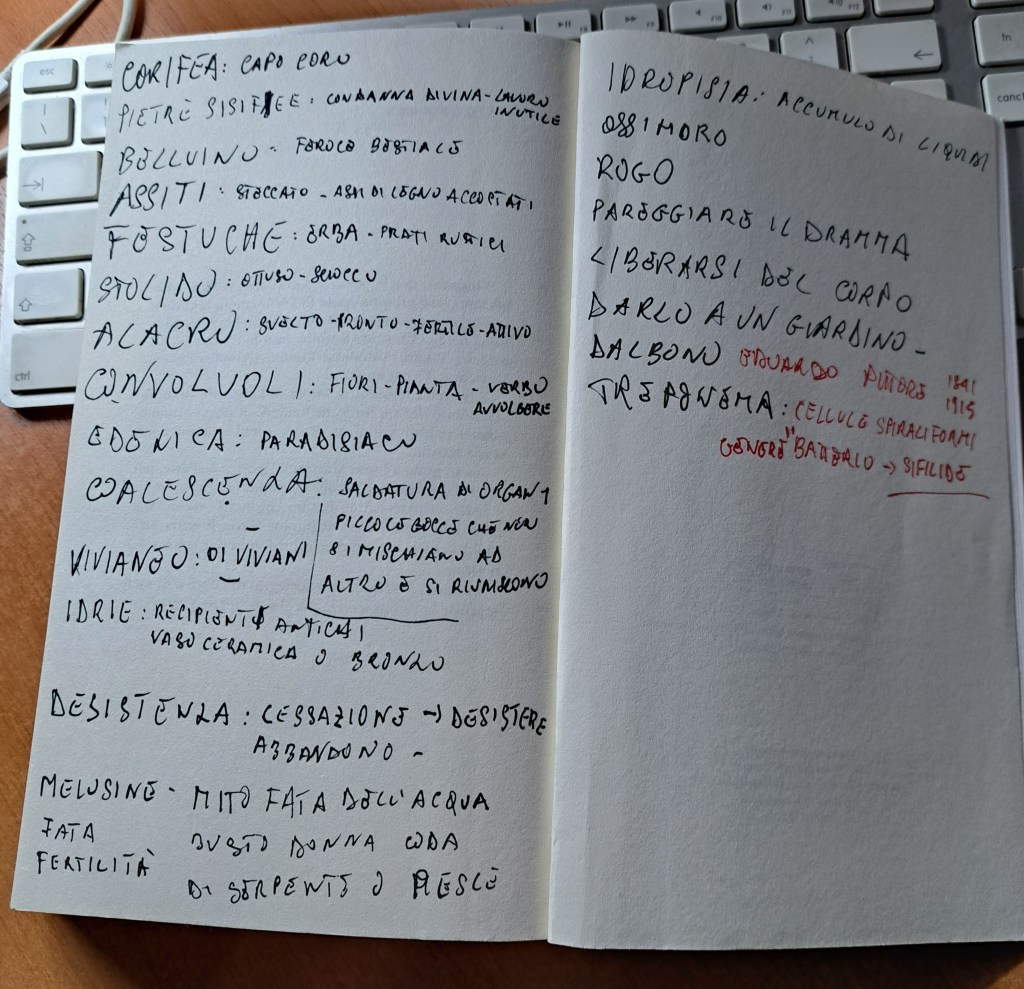 CORIFEA: CAPO CORO
PIETRE SISIFEE: CONDANNA DIVINA - LAVORO
INUTILE
BELLUINO - FEROCE BESTIALE
ASSITI: STECCATO - ASSI DI LEGNO ACCOSTATI
FESTUCHE: ERBA - PRATI RUSTICI
STOLIDO: OTTUSO - SCIOCCO
ALACRO: SVELTO - PRONTO - FERTILE - ATTIVO
CONVOLVOLI: FIORI - PIANTA - VERBO
AVVOLGERE
EDENICA: PARADISIACO
COALESCENZA: SALDATURA DI ORGANI
PICCOLE GOCCE CHE NON
SI MISCHIANO AD
ALTRO E SI RIUNISCONO
VIVIANEO: DI VIVIANI
IDRIE: RECIPIENTI ANTICHI
VASO CERAMICA O BRONZO
DESISTENZA: CESSAZIONE → DESISTERE
ABBANDONO -
MELUSINE - MITO FATA DELL'ACQUA
FATA BUSTO DONNA CODA
FERTILITÀ DI SERPENTE O PESCE
IDROPISIA: ACCUMULO DI LIQUIDI
OSSIMORO
ROGO
PAREGGIARE IL DRAMMA
LIBERARSI DEL CORPO
DARLO A UN GIARDINO -
DALBONO EDUARDO PITTORE 1841
1915
TREPONEMA: CELLULE SPIRALIFORMI
GENERE "BATTERIO → SIFILIDE
esc
ctrl
F8
F9
F10
F11
F12
fn
canc